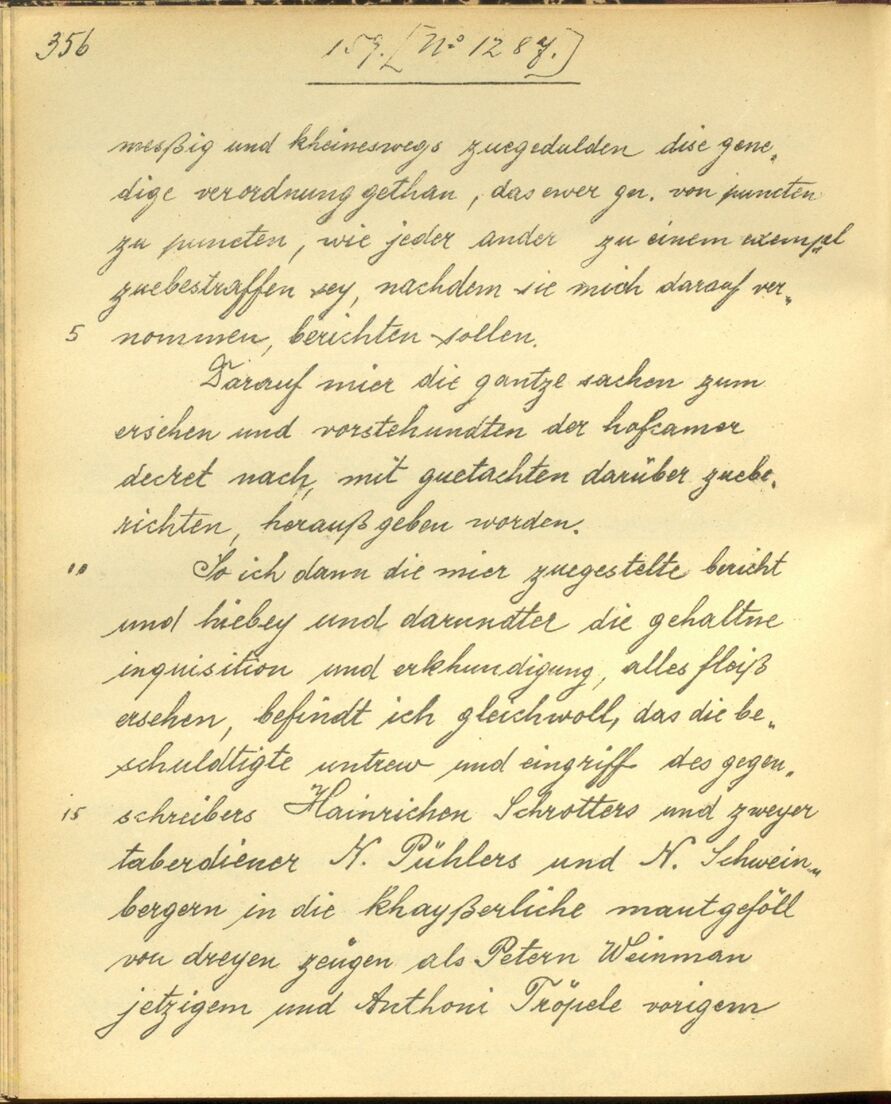 356 159. [No 1287.]
meßßig und kheineswegs zuegedulden dise gene„
dige verordnung gethan, das ewer gn. von puncten
zu puncten, wie jeder ander zu einem exempl
zuebestraffen sey, nachdem sie mich darauf ver„
5 nommen, berichten sollen.
Darauf mier die gantze sachen zum
ersehen und vorstehundten der hofcamer
decret nach, mit guetachten darüber zuebe„
richten, herauß geben worden.
10 So ich dann die mier zuegestelte bericht
und hiebey und darundter die gehaltne
inquisition und erkhundigung, alles fleiß
ersehen, befindt ich gleichwoll, das die be„
schuldtigte untrew und eingriff des gegen„
15 schreibers Hainrichen Schrotters und zweyer
taberdiener N. Pühlers und N. Schwein„
bergern in die khayßerliche mautgeföll
von dreyen zeugen als Petern Weinman
jetzigem und Anthoni Tröpele vorigem